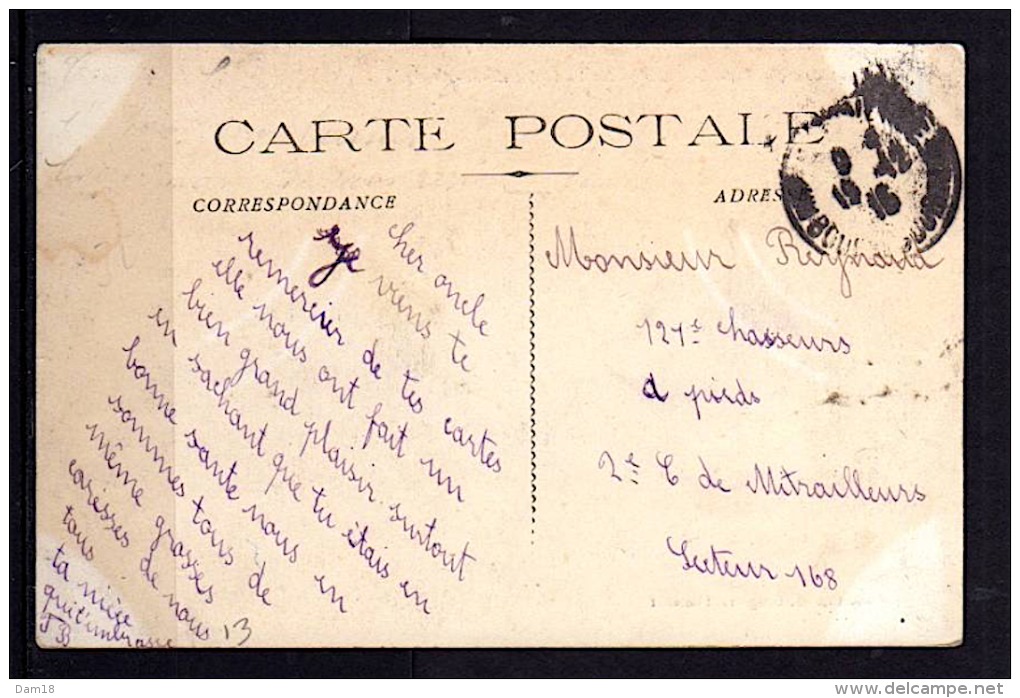 CARTE POSTALE
CORRESPONDANCE
cher oncle
je viens te
remercier de tes cartes
elle nous ont fait un
bien grand plaisir surtout
en sachant que tu étais en
bonne sante nous en
sommes tous de
même grosses
caresses de nous
tous
ta nièce
qui t'embrasse
J B
13
ADRESSE
Monsieur Reignard
121e chasseurs
a pieds
2e C de Mitrailleurs
Secteur 168
Dam18
delcampe.net